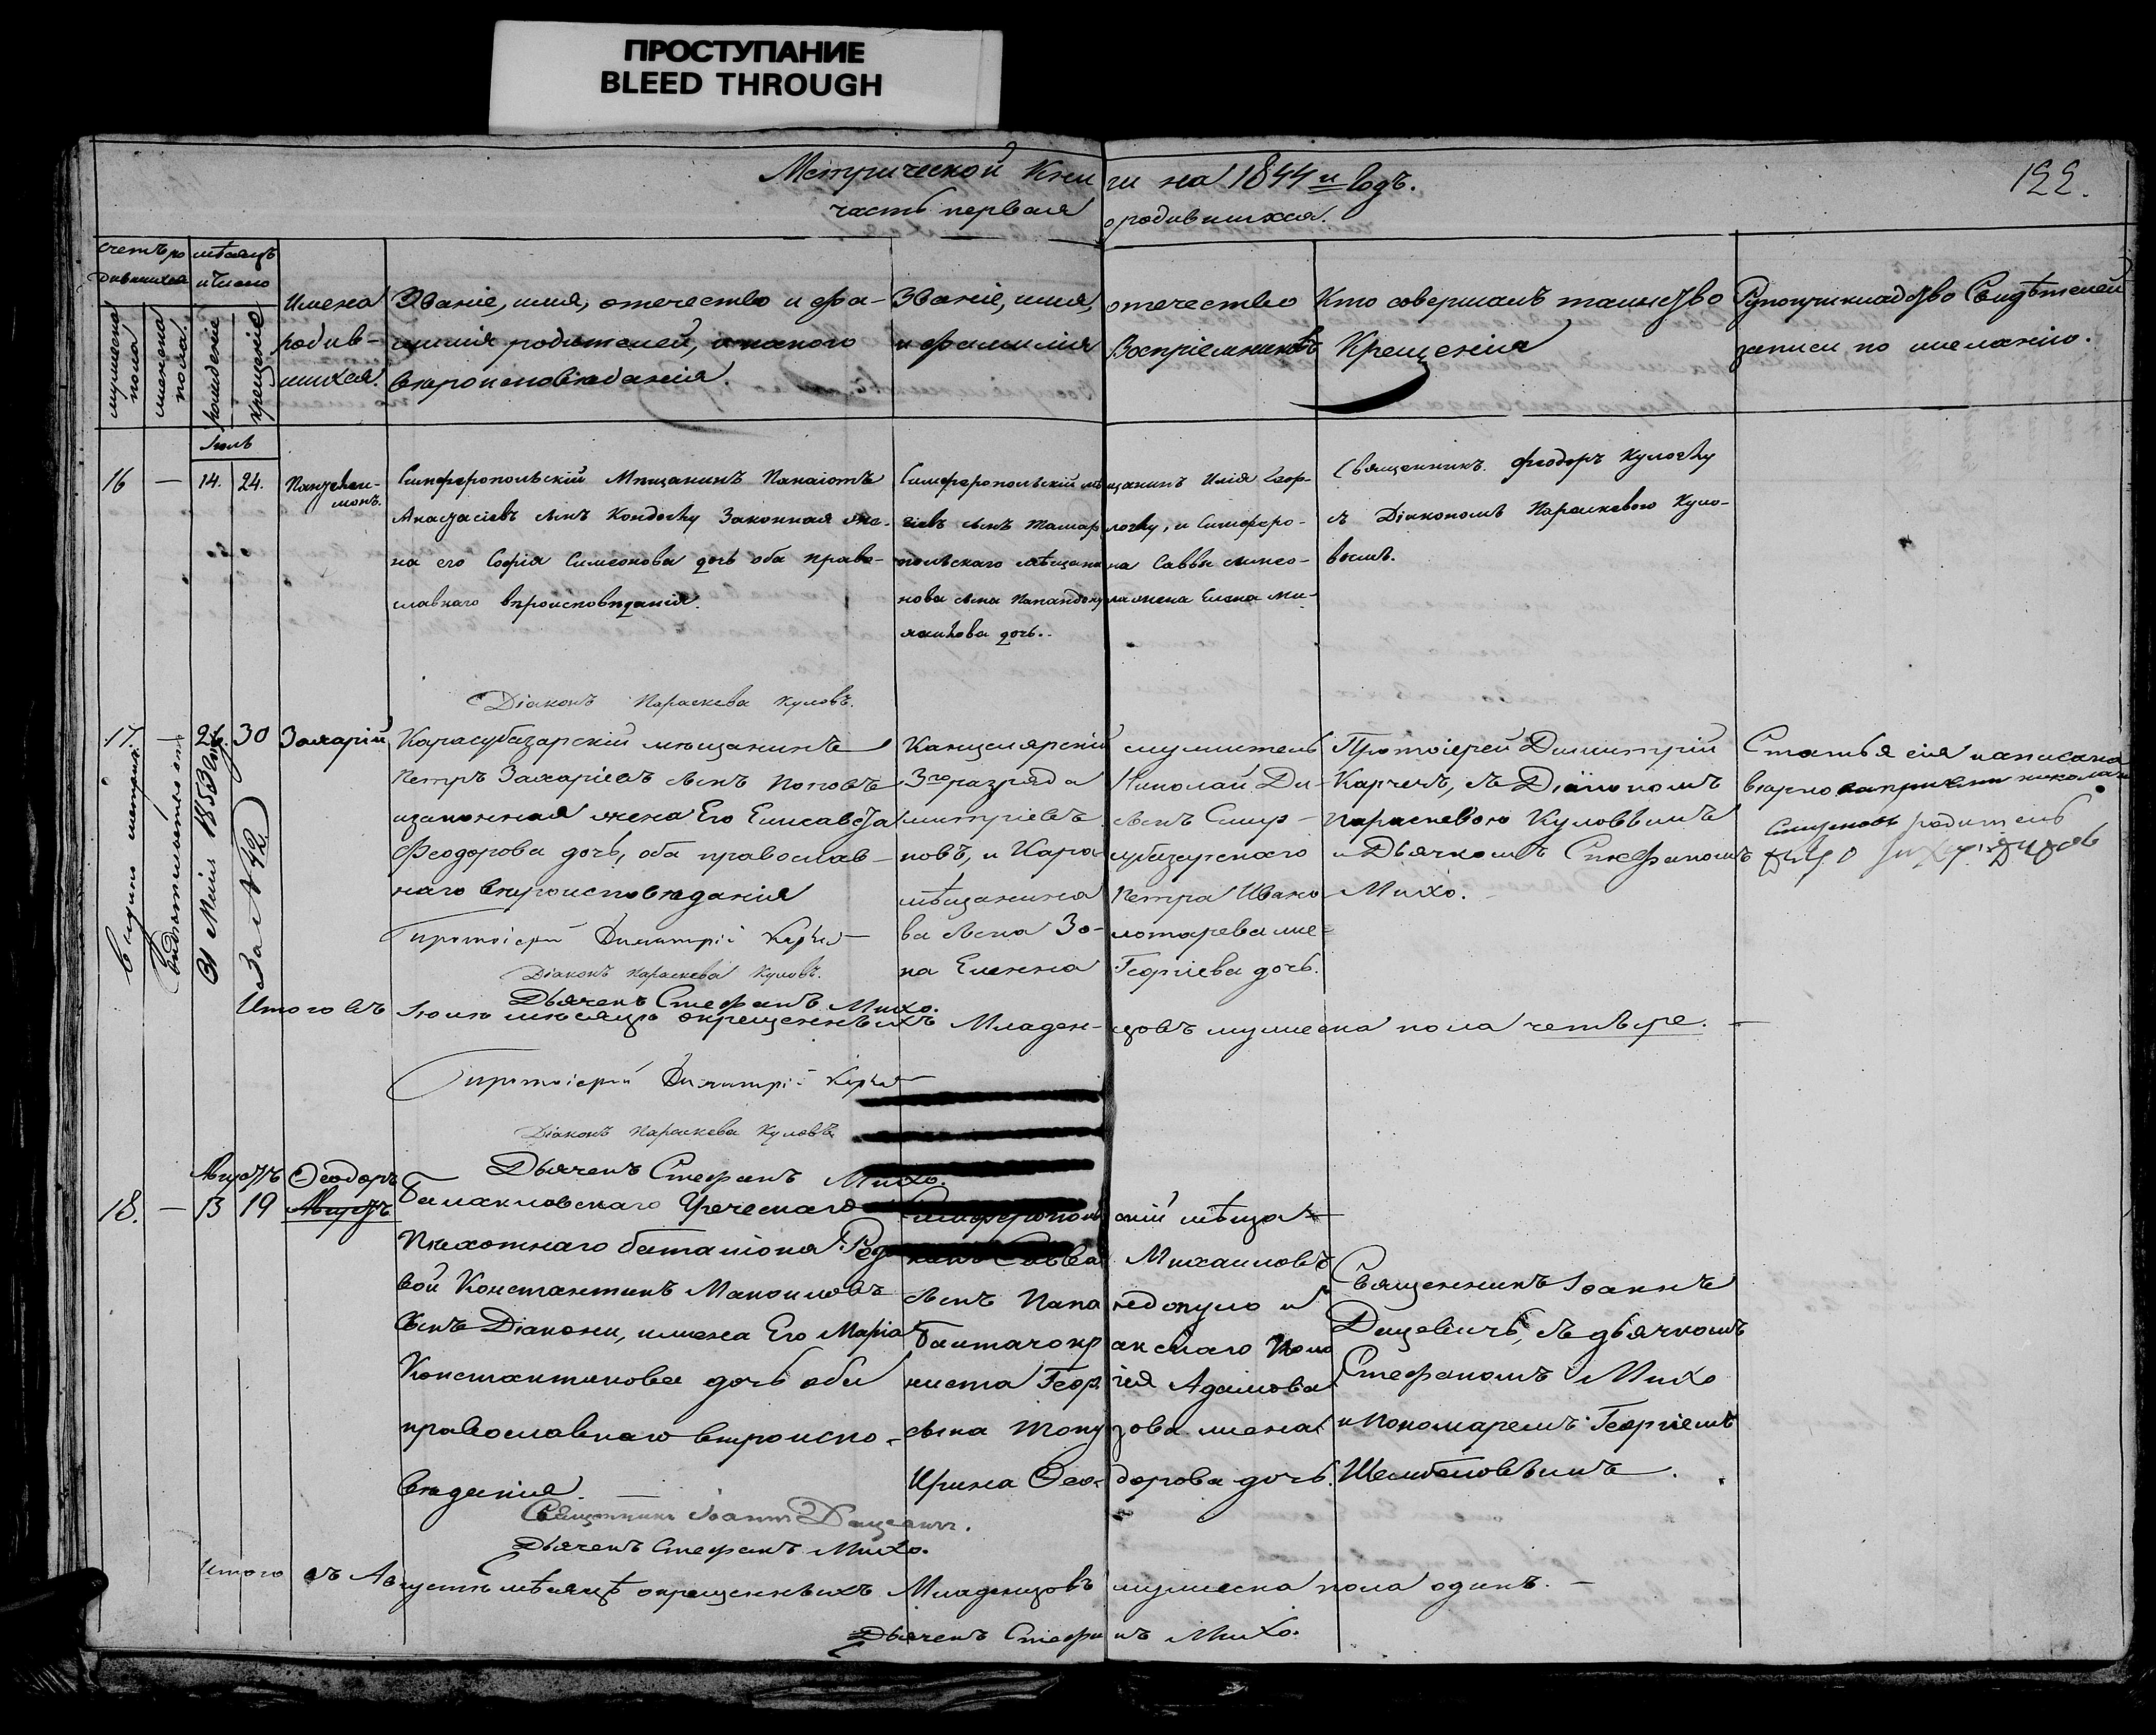 ПРОСТУПАНИЕ
BLEED THROUGH
Метрической Книги на 1844й годъ.
122.
часть первая о родившихся.
счетъ родившихся
мужеска пола
женска пола.
мѣсяцъ и число
рожденіе
крещеніе
Имена родившихся.
Званіе, имя, отечество и фа-
милія родителей, и какого
вѣроисповѣданія.
Званіе, имя, отечество
и фамилія Воспріемниковъ
Кто совершалъ таинство
Крещенія
Рукоприкладство Свидѣтелей
записи по желанію.
Іюль
16 — 14. 24.
Пантелеи-
монъ.
Симферопольскій Мѣщанинъ Панаіотъ
Анастасіевъ сынъ Законная же-
на его Софія Симеонова дочь оба право-
славнаго вѣроисповѣданія.
Симферопольскій мѣщанинъ Илія Геор-
гіевъ сынъ и Симферо-
польскаго мѣщанина Саввы симео-
нова сына жена Елена Ми-
дочь.
Священникъ Феодоръ
съ Діакономъ Параскевою Куло-
вымъ.
Діаконъ Параскева Куловъ.
17. — 26. 30
Захарій
Карасубазарскій мѣщанинъ
Петръ Захаріевъ сынъ Поповъ
изаконная жена Его Елисавета
Феодорова дочь, оба православ-
наго вѣроисповѣданія
Канцелярскій служитель
3го разряда Николай Ди-
митріевъ сынъ Смир-
новъ, и Карасубазарскаго
мѣщанина Петра Ивано-
ва сына Золотарева же-
на Еленна Георгіева дочь.
Протоіерей Димитрій
съ Діакономъ
Параскевою Куловымъ
и Дьячкомъ Стефаномъ
Михо.
Статья сія написана
вѣрно
родитель
31 Маія 1853 года
За № 42
Протоіерей Димитрій
Діаконъ Параскева Куловъ.
Дьячекъ Стефанъ Михо.
Итого въ Іюлѣ мѣсяцѣ окрещенныхъ Младенцовъ мужеска пола четыре. —
Протоіерей Димитрій
Діаконъ Параскева Куловъ
Дьячекъ Стефанъ Михо.
Августъ
18. — 13 19
Ѳеодоръ
Августъ
Балаклавскаго Греческаго
Пѣхотнаго баталіона Рядо-
вой Константинъ Маноиловъ
сынъ Діакони, ижена Его Марія
Константинова дочь оба
православнаго вѣроиспо-
вѣданія.
Симферопольскій мѣща-
нинъ Савва Михаиловъ
сынъ Папанедопуло и
Балтачокракскаго Коло-
ниста Георгія Адамова
сына Топузова жена
Ирина Ѳеодорова дочь.
Священникъ Іоаннъ
Дацевичъ, съ дьячкомъ
Стефаномъ Михо
и Пономаремъ Георгіемъ
Священникъ Іоаннъ Дацевичъ.
Дьячекъ Стефанъ Михо.
Итого въ Августѣ мѣсяцѣ окрещенныхъ Младенцовъ мужеска пола одинъ. —
Дьячекъ Стефанъ Михо.